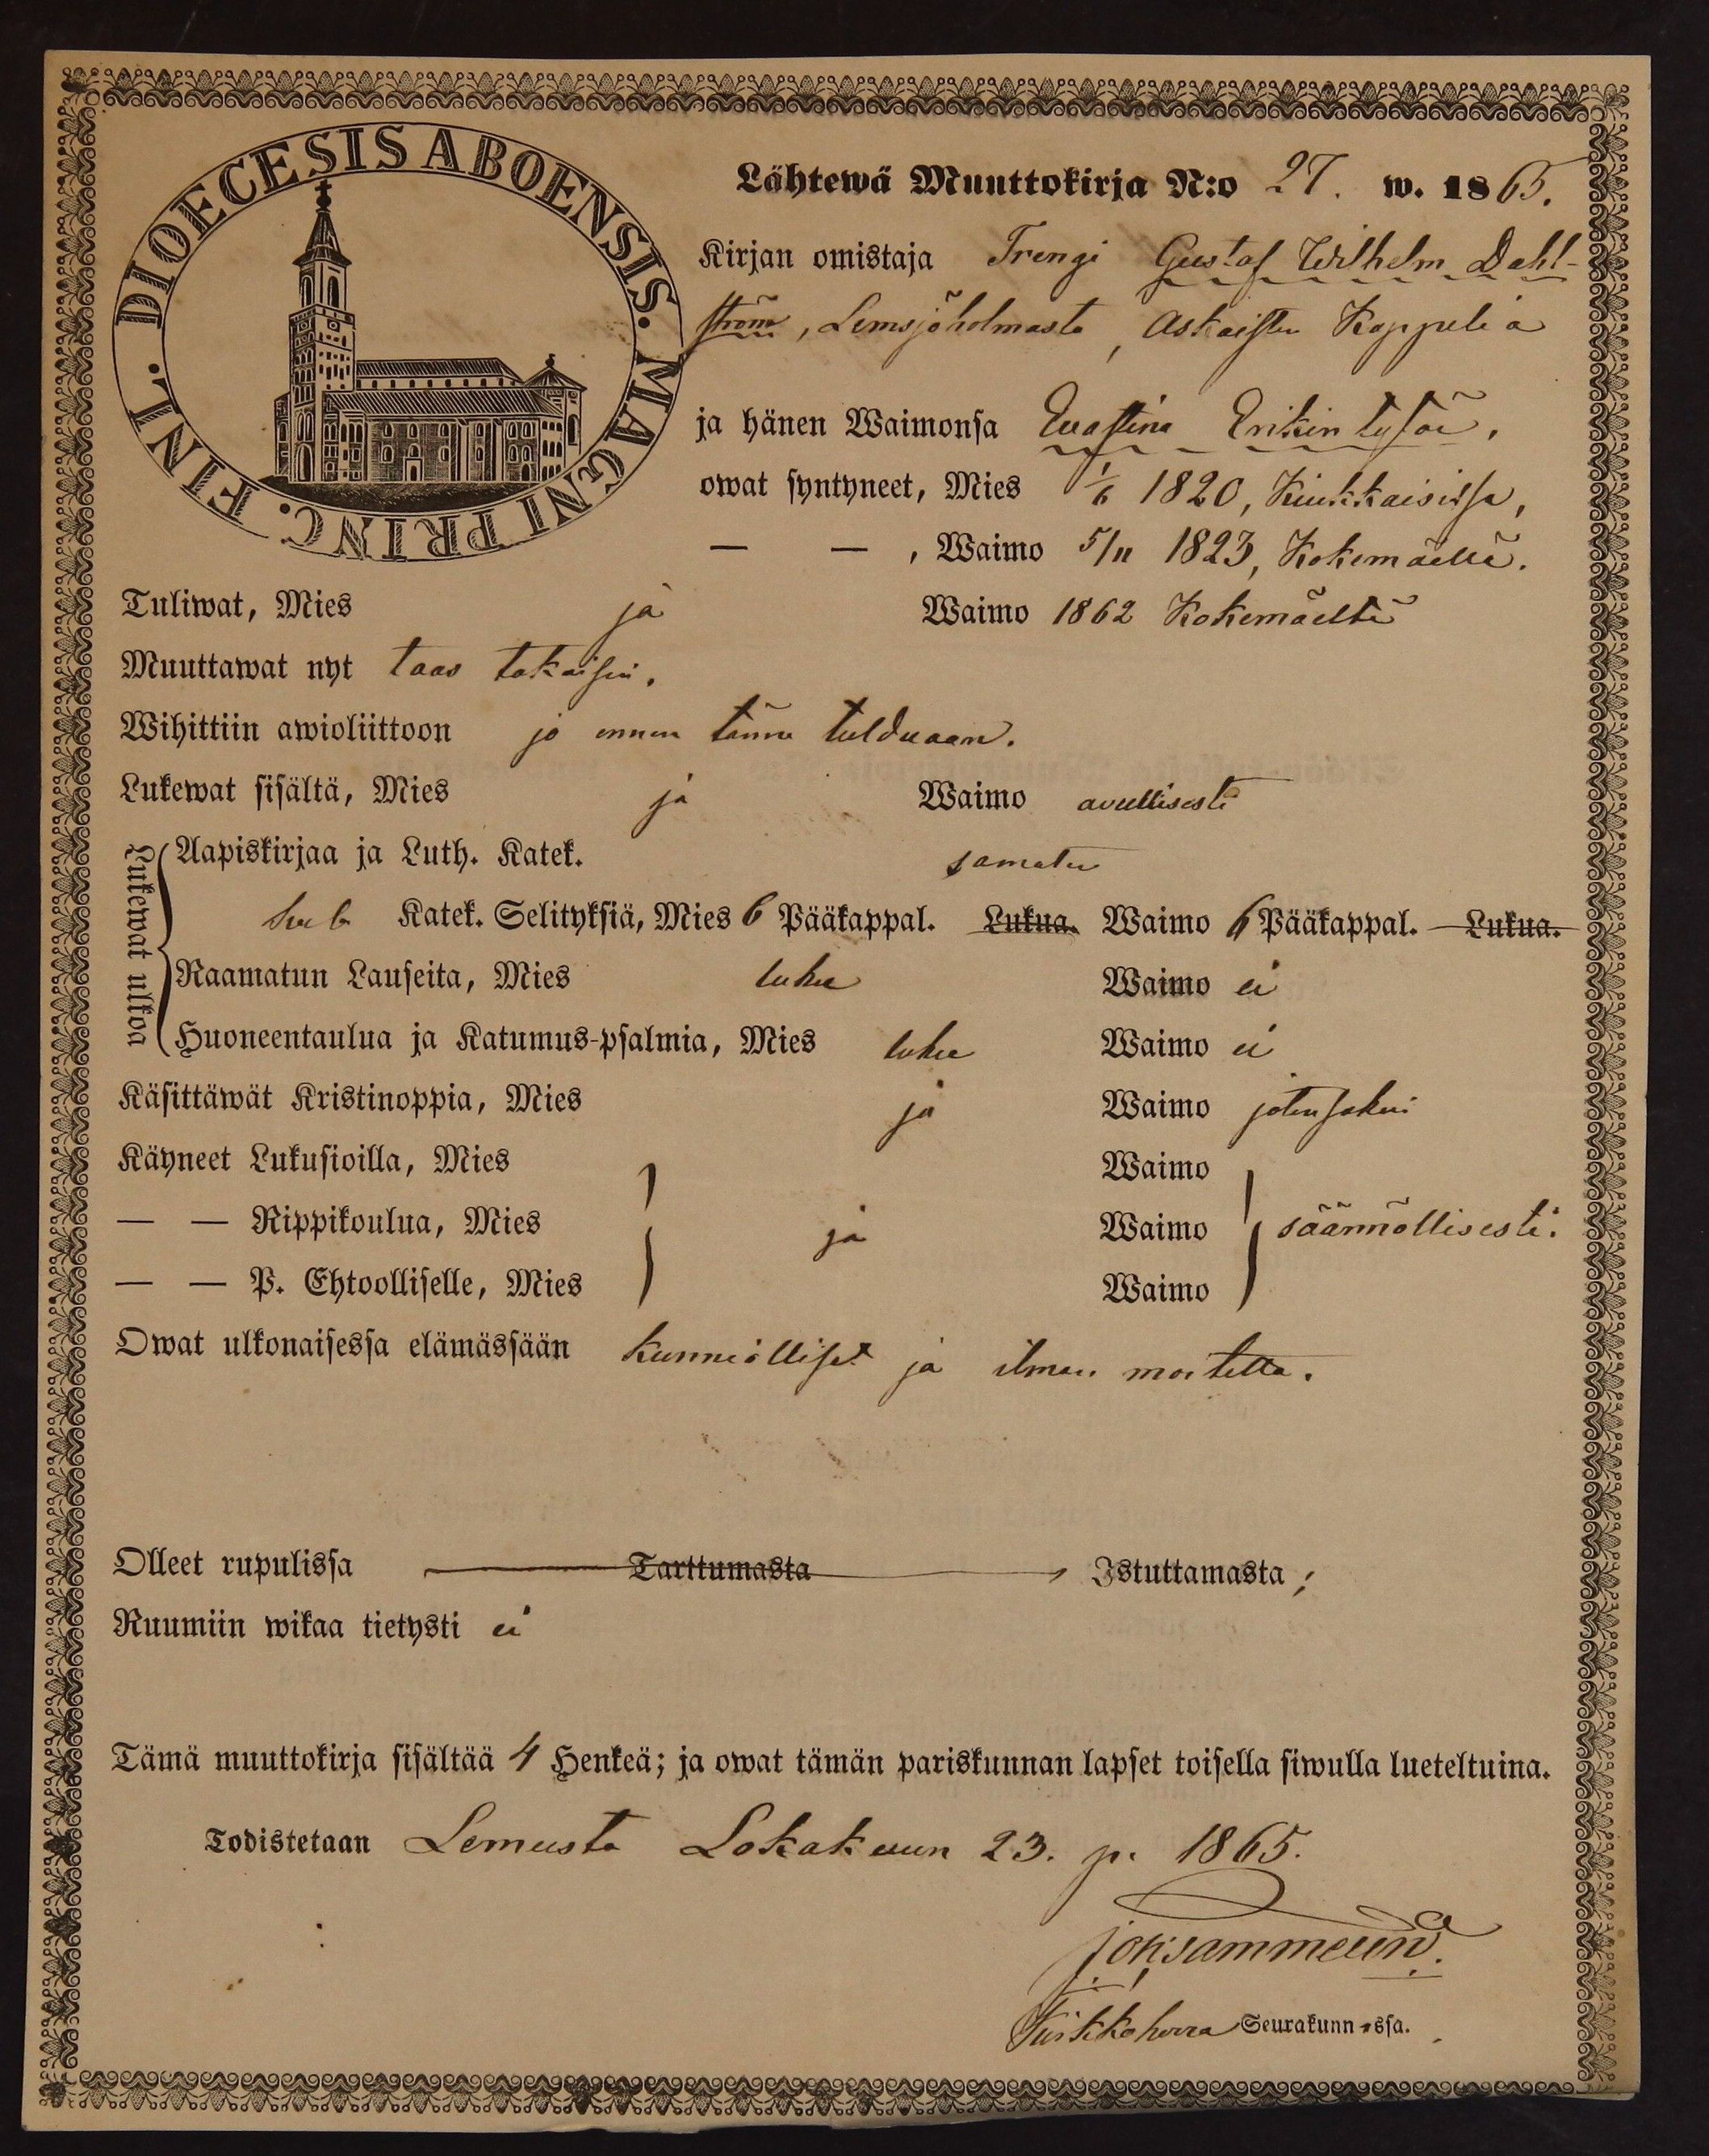 DIOECESIS ABOENSIS. MAGNI PRINC. FINL.
Lähtewä Muuttokirja N:o 27. w. 1865.
Kirjan omistaja Trengi Gustaf Wilhelm Dahl-
ström, Lemsjöholmasta, Askaisten Kappelia
ja hänen Waimonsa Evastina Erikin tytär,
owat syntyneet, Mies 1/6 1820, Kiukkaisissa,
— — , Waimo 5/11 1823, Kokemäellä.
Tuliwat, Mies ja Waimo 1862 Kokemäeltä
Muuttawat nyt taas takaisin.
Wihittiin awioliittoon jo ennen tänne tulduaan.
Lukewat sisältä, Mies ja Waimo avullisesti
Lukewat ulkoa
Aapiskirjaa ja Luth. Katek. samate
Katek. Selityksiä, Mies 6 Pääkappal. Lukua. Waimo 6 Pääkappal. Lukua.
Raamatun Lauseita, Mies lukee Waimo ei
Huoneentaulua ja Katumus-psalmia, Mies lukee Waimo ei
Käsittäwät Kristinoppia, Mies ja Waimo jotensakin
Käyneet Lukusioilla, Mies Waimo
— — Rippikoulua, Mies ja Waimo säännöllisesti.
— — P. Ehtoolliselle, Mies Waimo
Owat ulkonaisessa elämässään kunniolliset ja ilman moitetta.
Olleet rupulissa Tarttumasta Istuttamasta;
Ruumiin wikaa tietysti ei
Tämä muuttokirja sisältää 4 Henkeä; ja owat tämän pariskunnan lapset toisella siwulla lueteltuina.
Todistetaan Lemusta Lokakuun 23. p. 1865.
Kirkkoherra Seurakunn-ssa.